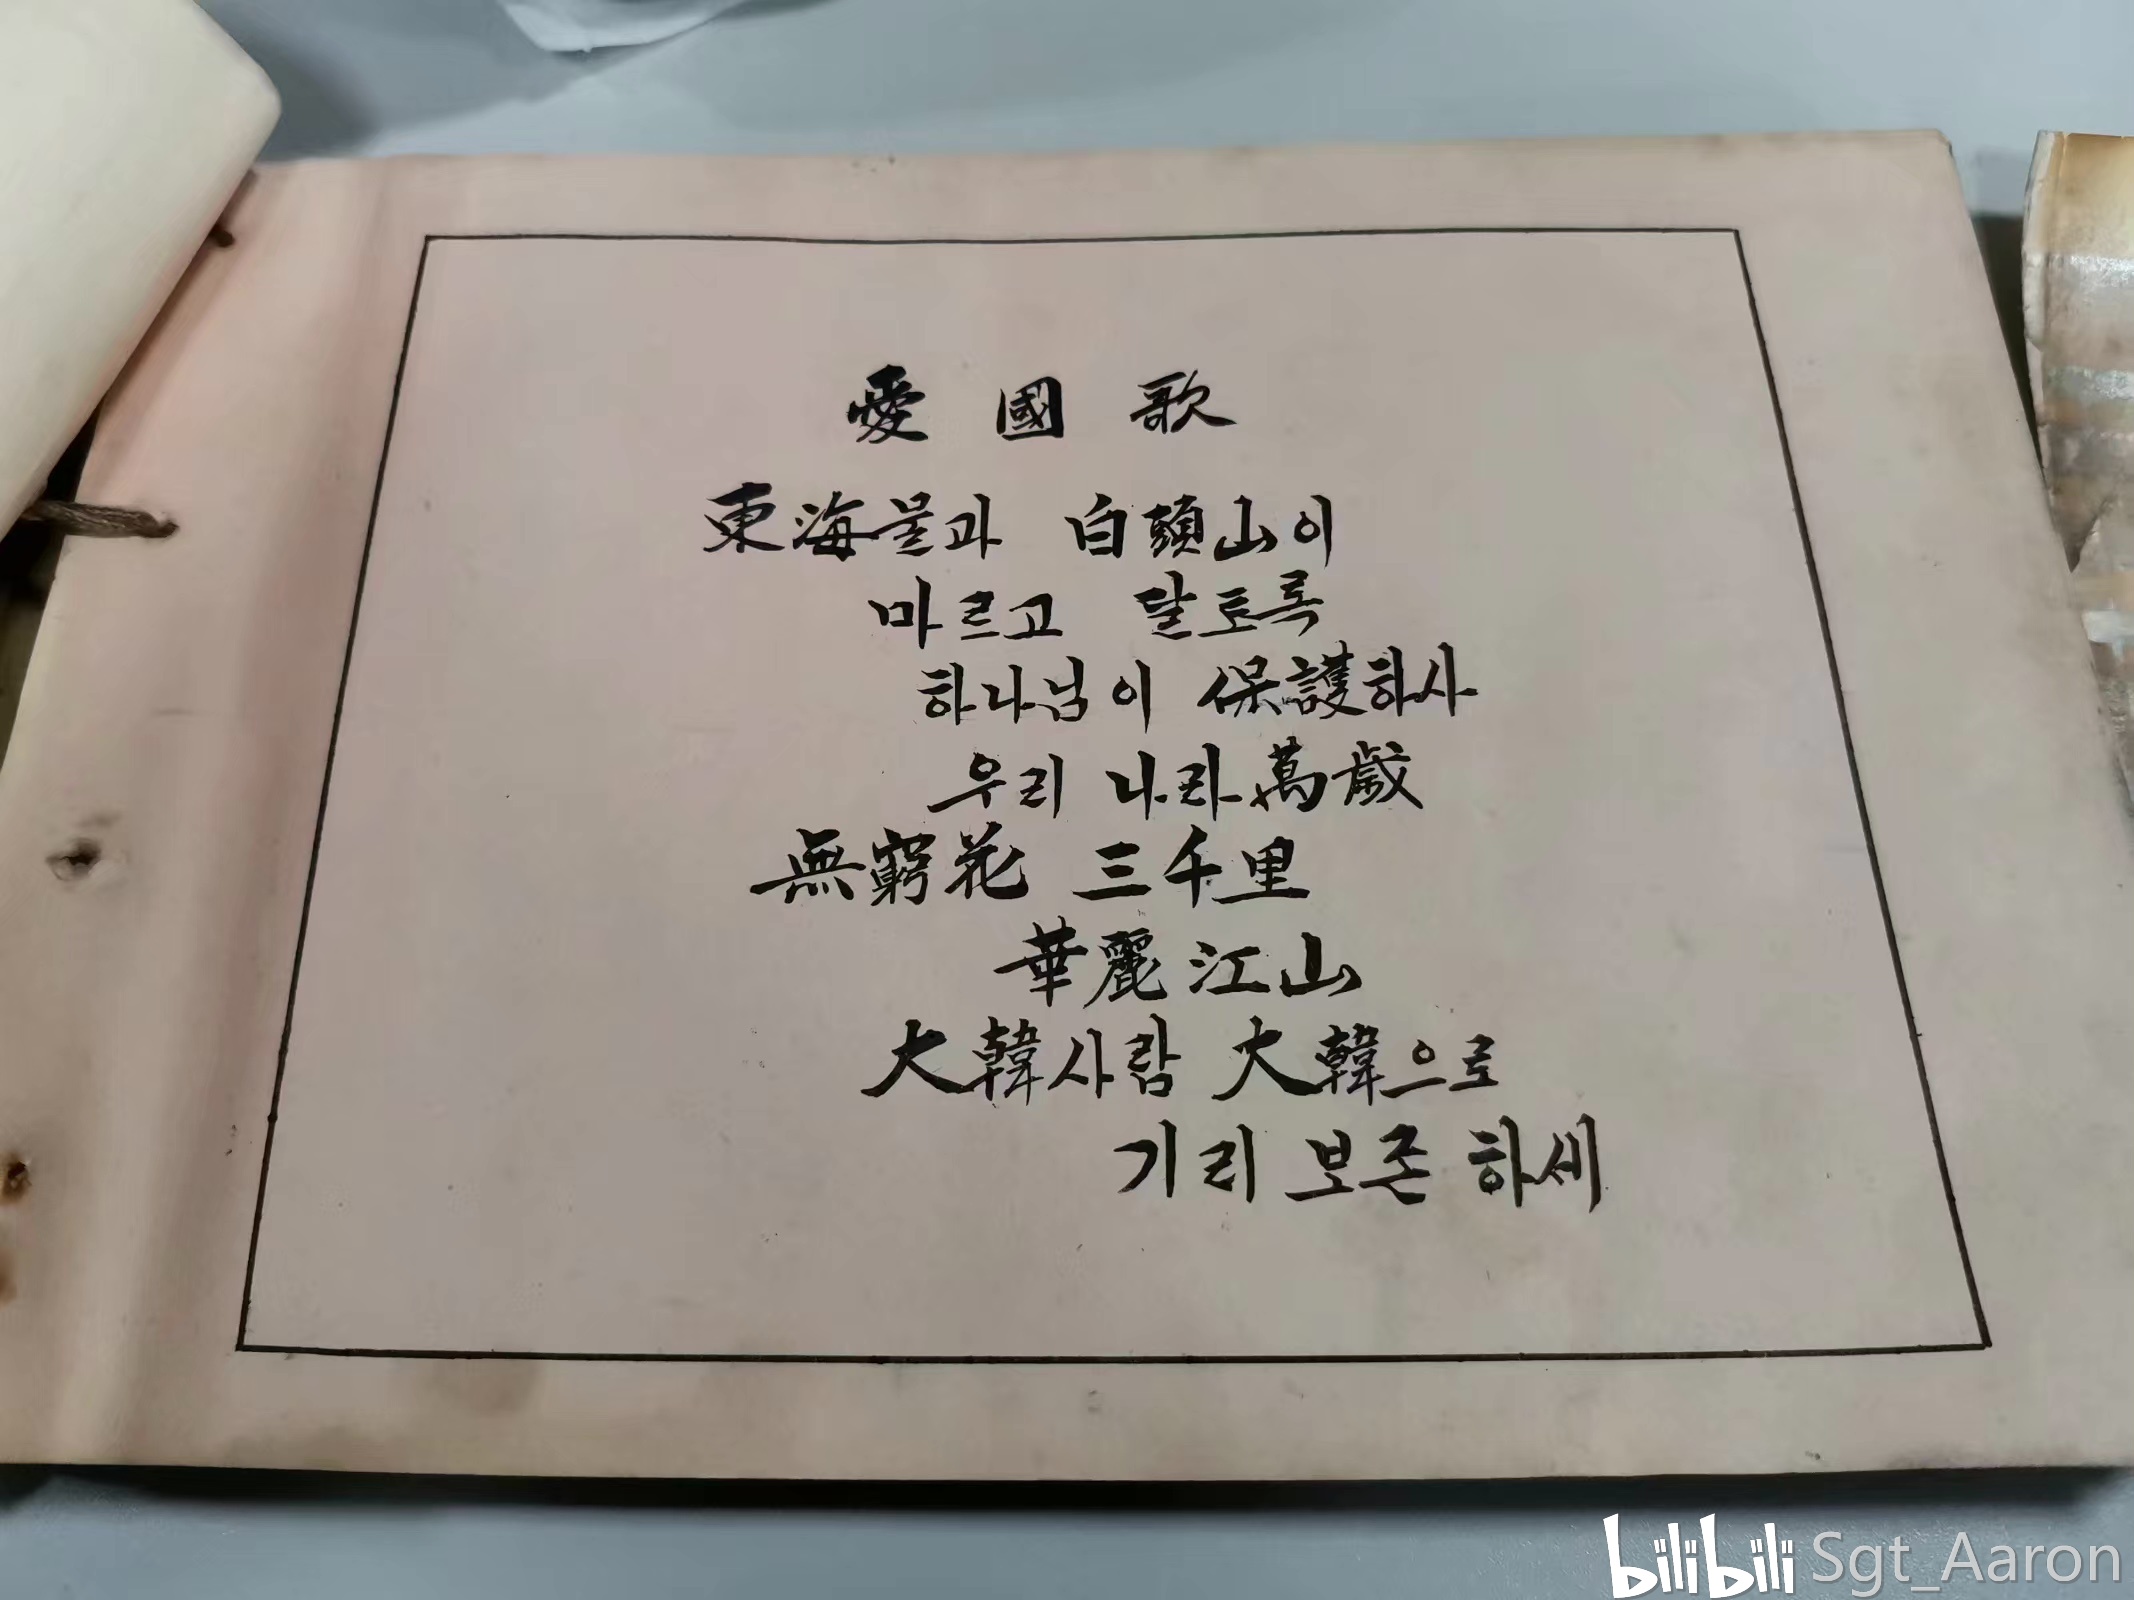 愛國歌
東海물과 白頭山이
마르고 달토록
하나님이 保護하사
우리 나라 萬歲
無窮花 三千里
華麗江山
大韓사람 大韓으로
기리 보존 하세
bilibili Sgt_Aaron